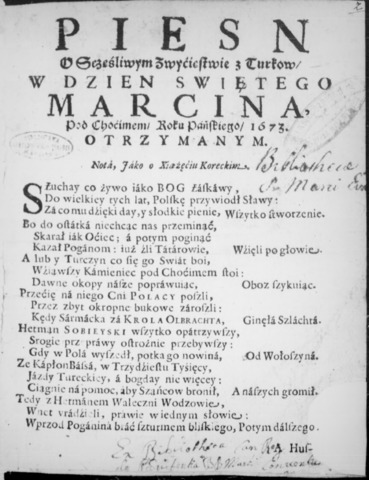 PIESN
O Sczęśliwym Zwyćięstwie z Turkow/
W DZIEN SWIĘTEGO
MARCINA,
Pod Choćimem/ Roku Pańskiego/ 1673.
OTRZYMANYM.
Notá, Jáko o Xiążęćiu Koreckim.
Bibliotheca
SŁuchay co żywo iáko BOG łáskáwy,
Do wielkiey tych lat, Polskę przywiodł Sławy:
Zá co mu dźięki day, y słodkie pienie, Wszytko stworzenie.
Bo do ostátká niechcąc nas przeminąć,
Skarał iák Oćiec; á potym poginąć
Kazał Pogánom: iuż źli Tátárowie, Wźięli po głowie.
A lub y Turczyn co się go Swiát boi,
Wźiąwszy Kámieniec pod Choćimem stoi:
Dawne okopy násze popráwuiąc, Oboz szykuiąc.
Przećię ná niego Cni POLACY poszli,
Przez zbyt okropne bukowe zárosli:
Kędy Sármácka zá KROLA OLBRACHTA, Ginęłá Szláchtá.
Hetman SOBIEYSKI wszytko opátrzywszy,
Srogie prz práwy ostrożnie przebywszy:
Gdy w Polá wyszedł, potka go nowiná, Od Wołoszyná.
Ze KápłonBászá, w Trzydźiestu Tyśięcy,
Jázdy Tureckiey, á bogday nie więcey:
Ciągnie ná pomoc, áby Szańcow bronił, A nászych gromił.
Tedy z Hetmánem Waleczni Wodzowie,
Wnet vrádźieli, prawie wiednym słowie:
Wprzod Pogániná bráć szturmem bliskiego, Potym dálszego.
A Hus-